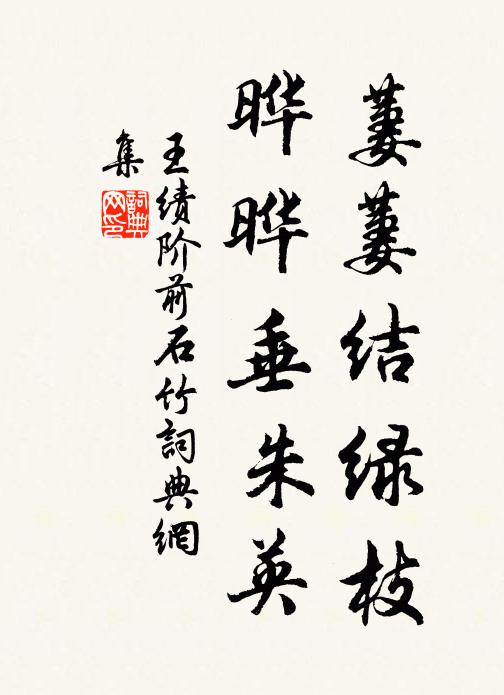 蒌蒌结绿枝
晔晔垂朱英
王绩阶前石竹詞典網
集
詞典网印